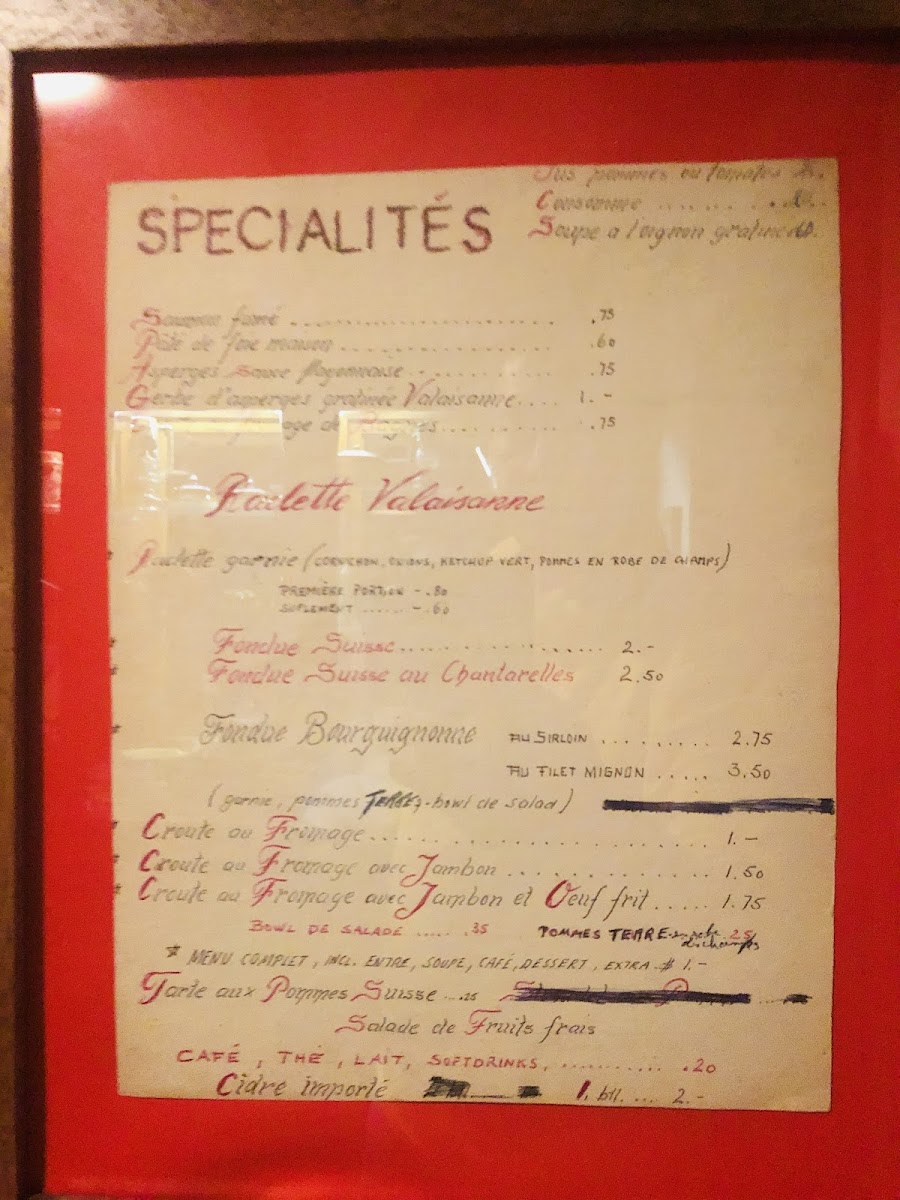 SPECIALITÉS
Jus pommes ou tomates
Consomme ........
Soupe a l'oignon gratinee .60.
Saumon fumé ........................ .75
Pâté de foie maison .................. .60
Asperges Sauce Mayonnaise ............ .75
Gerbe d'asperges gratinée Valaisanne.... 1. -
fromage de Bagnes........... .75
Raclette Valaisanne
* Raclette garnie (CORNICHON, ONIONS, KETCHUP VERT, POMMES EN ROBE DE CHAMPS)
PREMIÈRE PORTION - .80
SUPLEMENT ...... - .60
* Fondue Suisse...................... 2. -
* Fondue Suisse au Chantarelles 2.50
* Fondue Bourguignonne AU SIRLOIN ......... 2.75
AU FILET MIGNON ..... 3.50
(garnie, pommes TERRES - bowl de salad)
* Croute au Fromage............................ 1. -
* Croute au Fromage avec Jambon ............ 1.50
* Croute au Fromage avec Jambon et Oeuf frit ..... 1.75
BOWL DE SALADE ..... .35 POMMES TERRE en robe des champs .25
* MENU COMPLET, INCL. ENTRE, SOUPE, CAFÉ, DESSERT, EXTRA $ 1. -
Tarte aux Pommes Suisse ... .25
Salade de Fruits frais
CAFÉ, THÉ, LAIT, SOFTDRINKS, .......... .20
Cidre importé 1. btl. ... 2. -